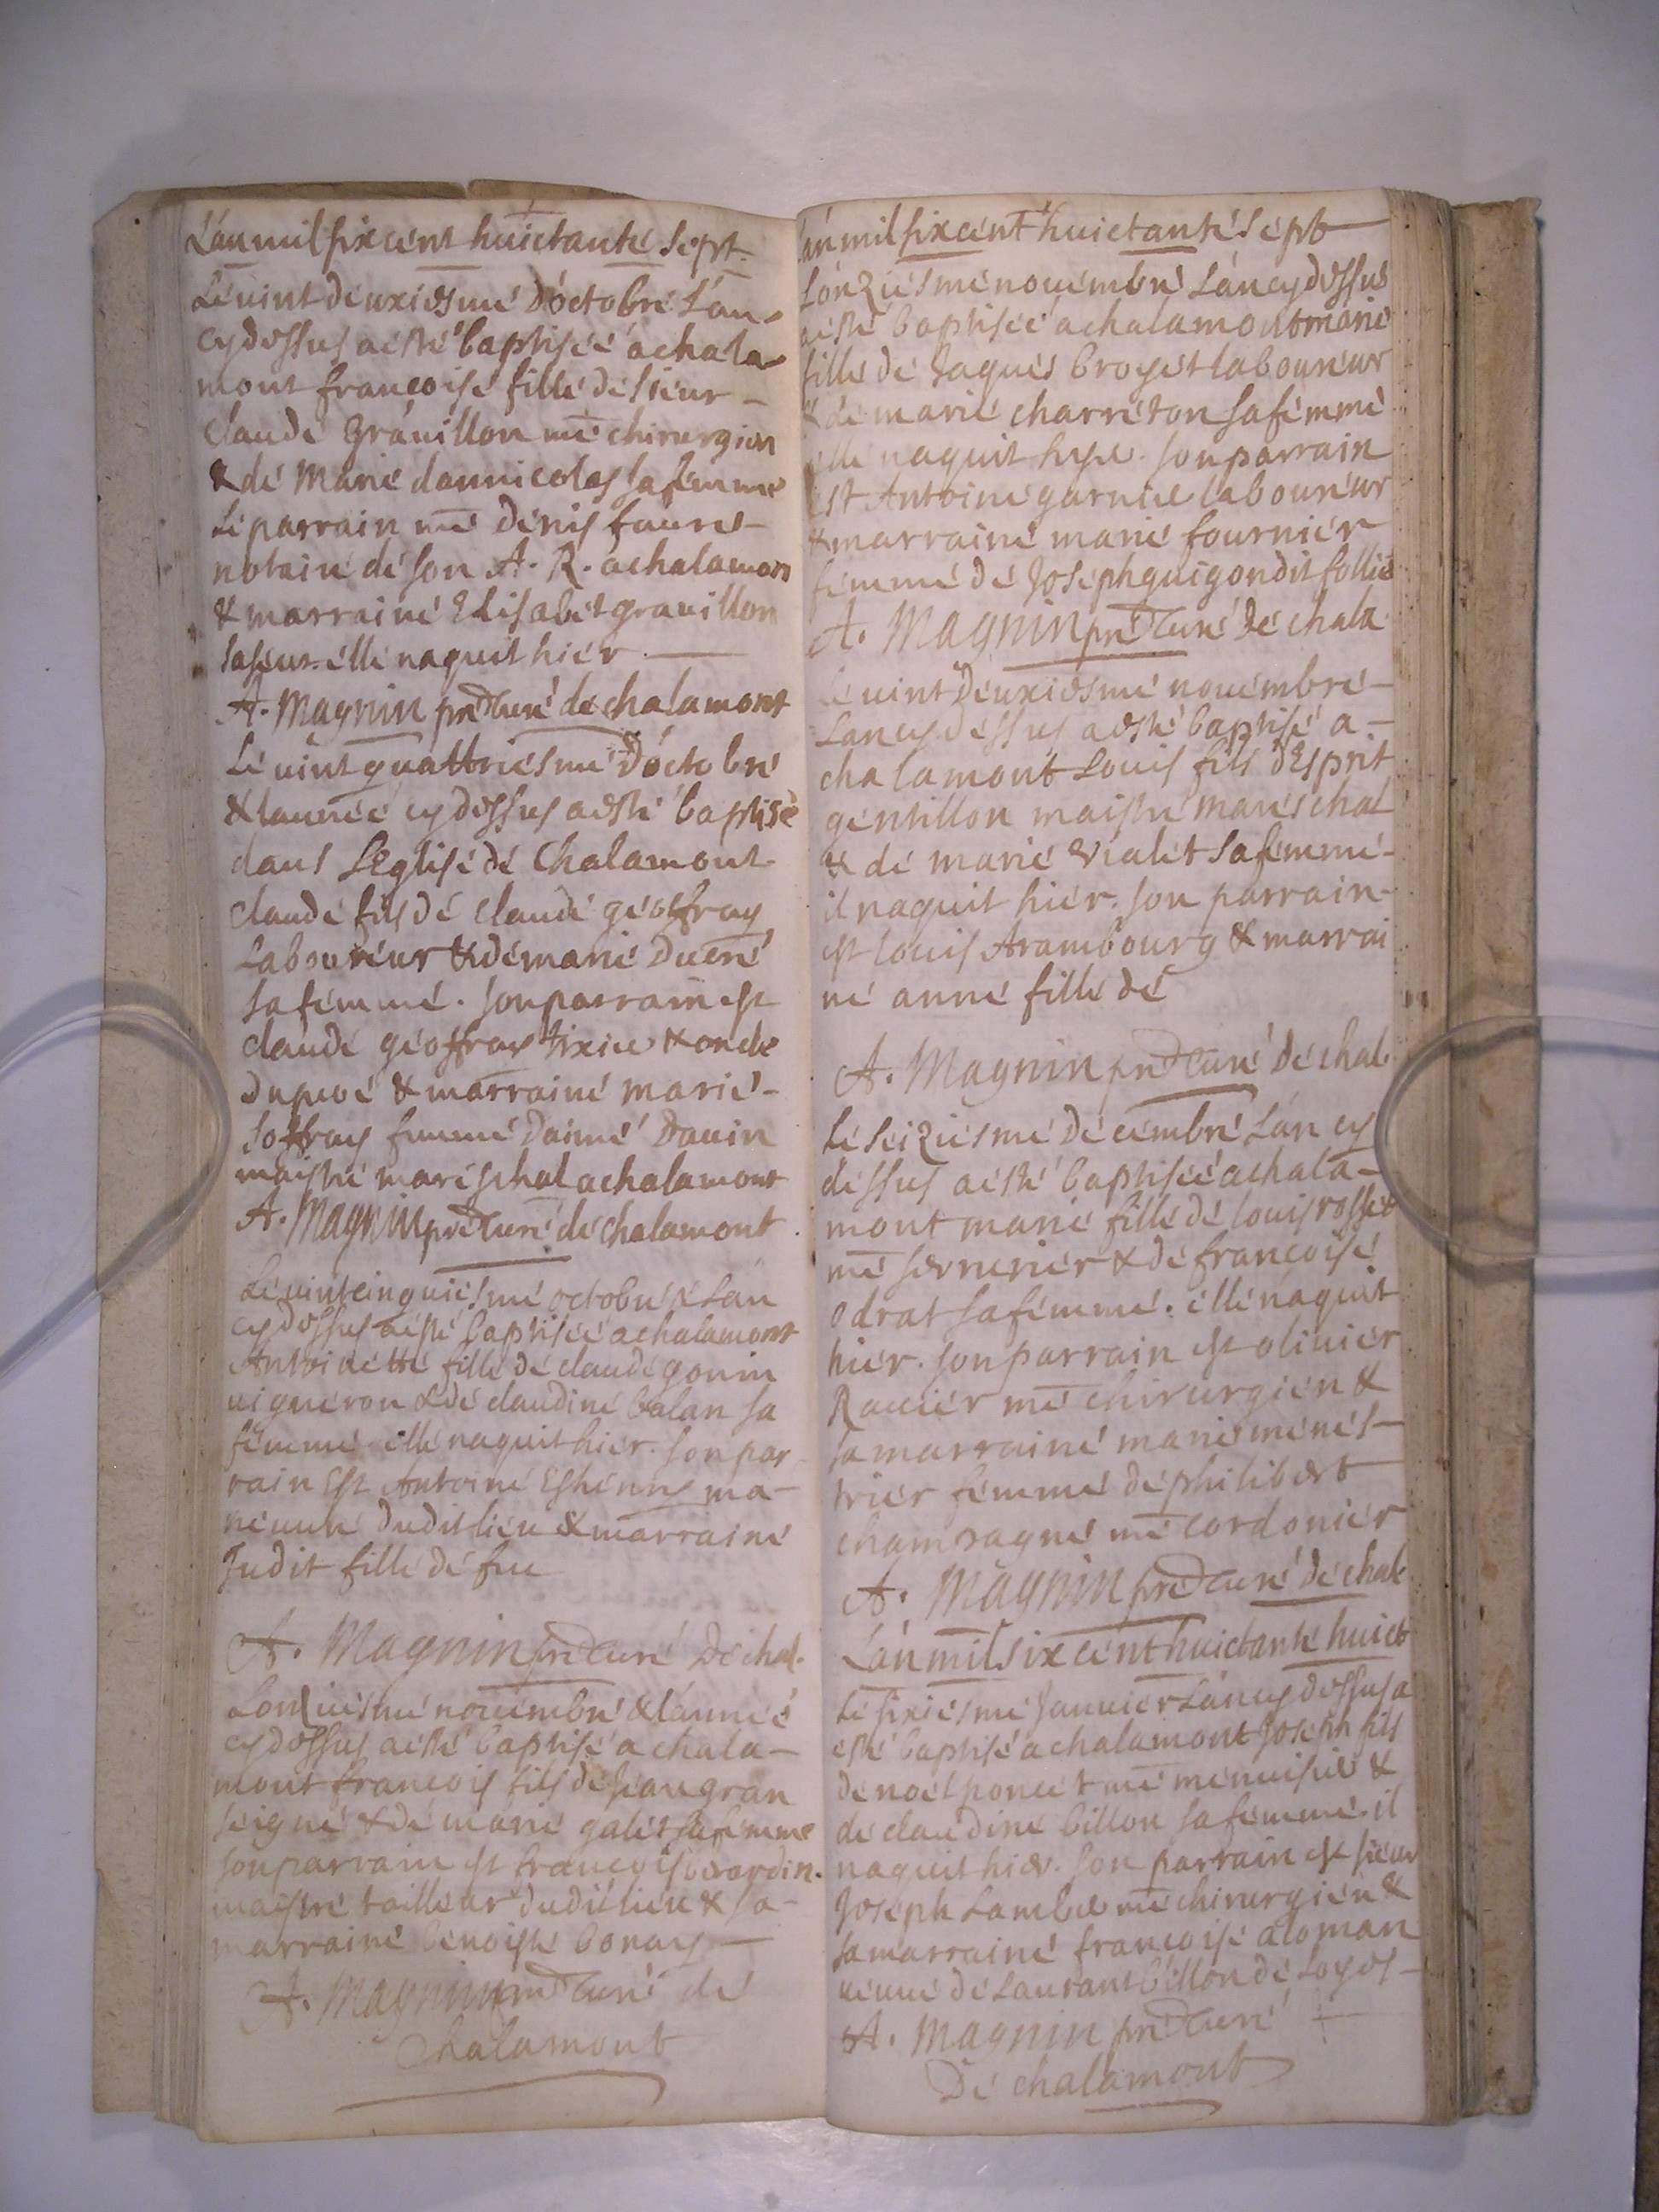 L'an mil six cent huictante sept
Le vint deuxiesme d'octobre l'an
cy dessus a esté baptisée a chala
mont francoise fille de sieur
claude Grauillon me chirurgien
& de Marie dannicolas sa femme
Le parrain me Denis faure
notaire de son A. R. a chalamon
& marraine Elisabet grauillon
sa seur. elle naquit hier
A. Magnin pre & curé de chalamont
Le vint quattriesme d'octobre
& l'année cy dessus a esté baptisé
dans L'Eglise de Chalamont
claude fils de claude geoffray
Laboureur & de marie
sa femme. son parrain est
claude geoffray tixier & oncle
du & marraine marie
Joffray femme d'aimé Dauin
maistre mareschal a chalamont
A. Magnin pre & curé de chalamont
Le vintcinquiesme octobre & l'an
cy dessus a esté baptisée a chalamont
Antoinette fille de claude gonin
uigneron & de claudine balan sa
femme elle naquit hier. son par
rain Est Antoine Estienne ma-
neuure dudit lieu & marraine
Judit fille de feu
A. Magnin pre & curé De chal.
L'onziesme nouembre & l'année
cy dessus a esté baptisé a chala-
mont francois fils de Jean gran
seigne & de marie galet sa femme
son parrain est francois berardin
maistre tailleur dudit lieu & sa
marraine benoiste bonay
A. Magnin pre & curé de
Chalamont
L'an mil six cent huictante sept
L'onziesme nouembre L'an cy dessus
a esté baptisée a chalamont marie
fille de Jaques broyet laboureur
& de marie charreton sa femme
elle naquit hyer. son parrain
est Antoine garnier laboureur
& marraine marie fournier
femme de Joseph guigon dit follie
A. Magnin pre & curé De chala
Le vint deuxiesme nouembre
L'an cy dessus a esté baptisé a
chalamont Louis fils d'Esprit
gentillon maistre mareschal
& de marie vialet sa femme
il naquit hier. son parrain
est louis Arambourg & marrai
ne anne fille de
A. Magnin pre & curé De chal.
Le seiziesme De cembre L'an cy
dessus a esté baptisée a chala-
mont marie fille de louis rosset
me serrurier & de francoise
odrat sa femme. elle naquit
hier. son parrain est oliuier
Rauier me chirurgien &
sa marraine marie menes-
trier femme de philibert
champagne me cordonier
A. Magnin pre & curé De chal.
L'an mil six cent huictante huict
Le sixiesme Januier L'an cy dessus a
esté baptisé a chalamont Joseph fils
de noel poncet me menuisier &
de claudine billon sa femme. il
naquit hier. son parrain est sieur
Joseph Lambert me chirurgien &
sa marraine francoise aloman
ueuue de Laurant billon de Loyes
A. Magnin pre & curé
De chalamont